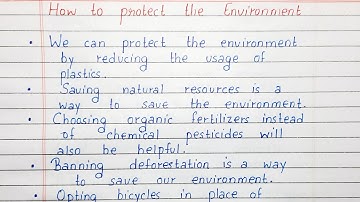 How to protect the Environment
• We can protect the environment
by reducing the usage of
plastics.
• Saving natural resources is a
way to save the environment.
• Choosing organic fertilizers instead
of chemical pesticides will
also be helpful.
• Banning deforestation is a way
to save our environment.
• Opting bicycles in place of